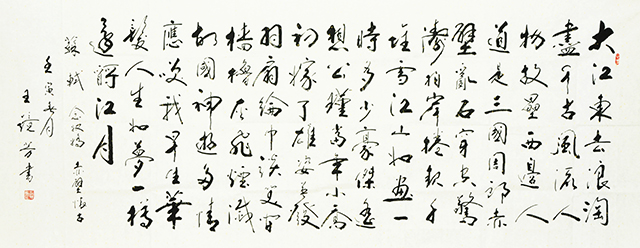 大江東去浪淘
盡千古風流人
物故壘西邊人
道是三國周郎赤
壁亂石穿空驚
濤拍岸捲起千
堆雪江山如畫一
時多少豪傑遙
想公瑾當年小喬
初嫁了雄姿英發
羽扇綸巾談笑間
檣櫓灰飛煙滅
故國神遊多情
應笑我早生華
髮人生如夢一樽
還酹江月
蘇軾 念奴嬌 赤壁懷古
壬寅月
王芳書